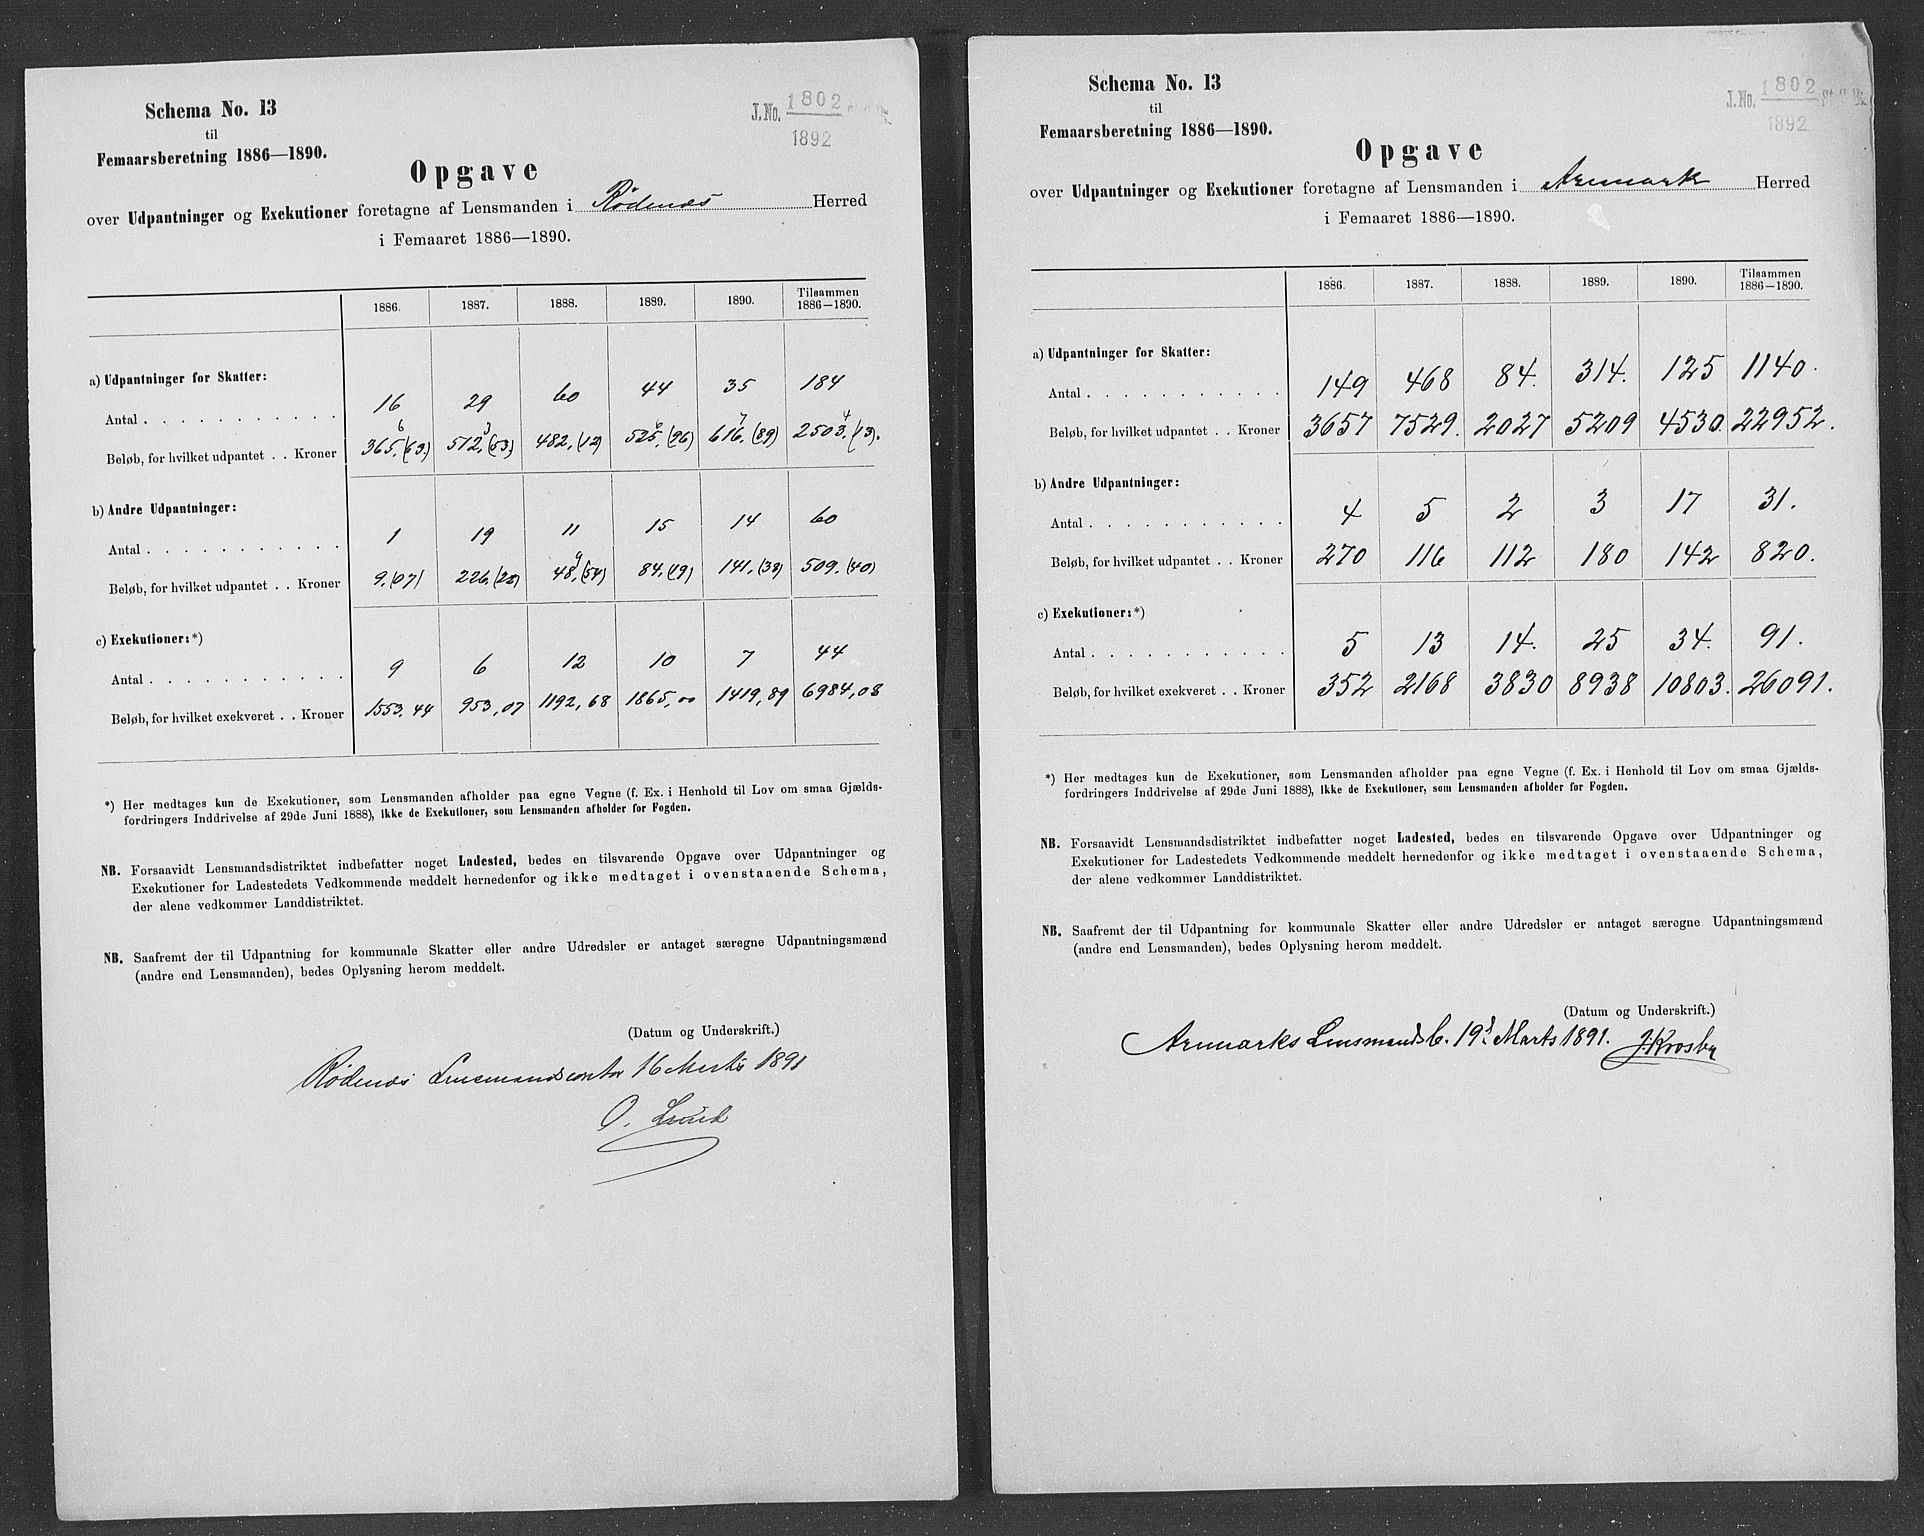 Schema No. 13
til
Femaarsberetning 1886—1890.
J.No. 1802
1892
Opgave
over Udpantninger og Exekutioner foretagne af Lensmanden i Rødenæs Herred
i Femaaret 1886—1890.
1886. 1887. 1888. 1889. 1890. Tilsammen 1886—1890.
a) Udpantninger for Skatter:
Antal . . . . . . . . . . . 16 29 60 44 35 184
Beløb, for hvilket udpantet . . Kroner 365,(63) 512,(53) 482,(12) 525,(96) 616,(89) 2503,(13).
b) Andre Udpantninger:
Antal . . . . . . . . . . . 1 19 11 15 14 60
Beløb, for hvilket udpantet . . Kroner 9,(07) 226,(22) 48,(54) 84,(19) 141,(38) 509,(40)
c) Exekutioner:*)
Antal . . . . . . . . . . . 9 6 12 10 7 44
Beløb, for hvilket exekveret . . Kroner 1553,44 953,07 1192,68 1865,00 1419,89 6984,08
*) Her medtages kun de Exekutioner, som Lensmanden afholder paa egne Vegne (f. Ex. i Henhold til Lov om smaa Gjælds-
fordringers Inddrivelse af 29de Juni 1888), ikke de Exekutioner, som Lensmanden afholder for Fogden.
NB. Forsaavidt Lensmandsdistriktet indbefatter noget Ladested, bedes en tilsvarende Opgave over Udpantninger og
Exekutioner for Ladestedets Vedkommende meddelt hernedenfor og ikke medtaget i ovenstaaende Schema,
der alene vedkommer Landdistriktet.
NB. Saafremt der til Udpantning for kommunale Skatter eller andre Udredsler er antaget særegne Udpantningsmænd
(andre end Lensmanden), bedes Oplysning herom meddelt.
(Datum og Underskrift.)
Rødenæs Lensmandscontor 16 Marts 1891
O. Lund
Schema No. 13
til
Femaarsberetning 1886—1890.
J.No. 1802
1892
Opgave
over Udpantninger og Exekutioner foretagne af Lensmanden i Aremark Herred
i Femaaret 1886—1890.
1886. 1887. 1888. 1889. 1890. Tilsammen 1886—1890.
a) Udpantninger for Skatter:
Antal . . . . . . . . . . . 149 468 84. 314. 125 1140.
Beløb, for hvilket udpantet . . Kroner 3657 7529. 2027 5209 4530. 22952.
b) Andre Udpantninger:
Antal . . . . . . . . . . . 4 5 2 3 17 31.
Beløb, for hvilket udpantet . . Kroner 270 116 112 180 142 820.
c) Exekutioner:*)
Antal . . . . . . . . . . . 5 13 14. 25 34. 91.
Beløb, for hvilket exekveret . . Kroner 352 2168 3830 8938 10803. 26091.
*) Her medtages kun de Exekutioner, som Lensmanden afholder paa egne Vegne (f. Ex. i Henhold til Lov om smaa Gjælds-
fordringers Inddrivelse af 29de Juni 1888), ikke de Exekutioner, som Lensmanden afholder for Fogden.
NB. Forsaavidt Lensmandsdistriktet indbefatter noget Ladested, bedes en tilsvarende Opgave over Udpantninger og
Exekutioner for Ladestedets Vedkommende meddelt hernedenfor og ikke medtaget i ovenstaaende Schema,
der alene vedkommer Landdistriktet.
NB. Saafremt der til Udpantning for kommunale Skatter eller andre Udredsler er antaget særegne Udpantningsmænd
(andre end Lensmanden), bedes Oplysning herom meddelt.
(Datum og Underskrift.)
Aremarks Lensmandsc. 19d Marts 1891. J. Krosby